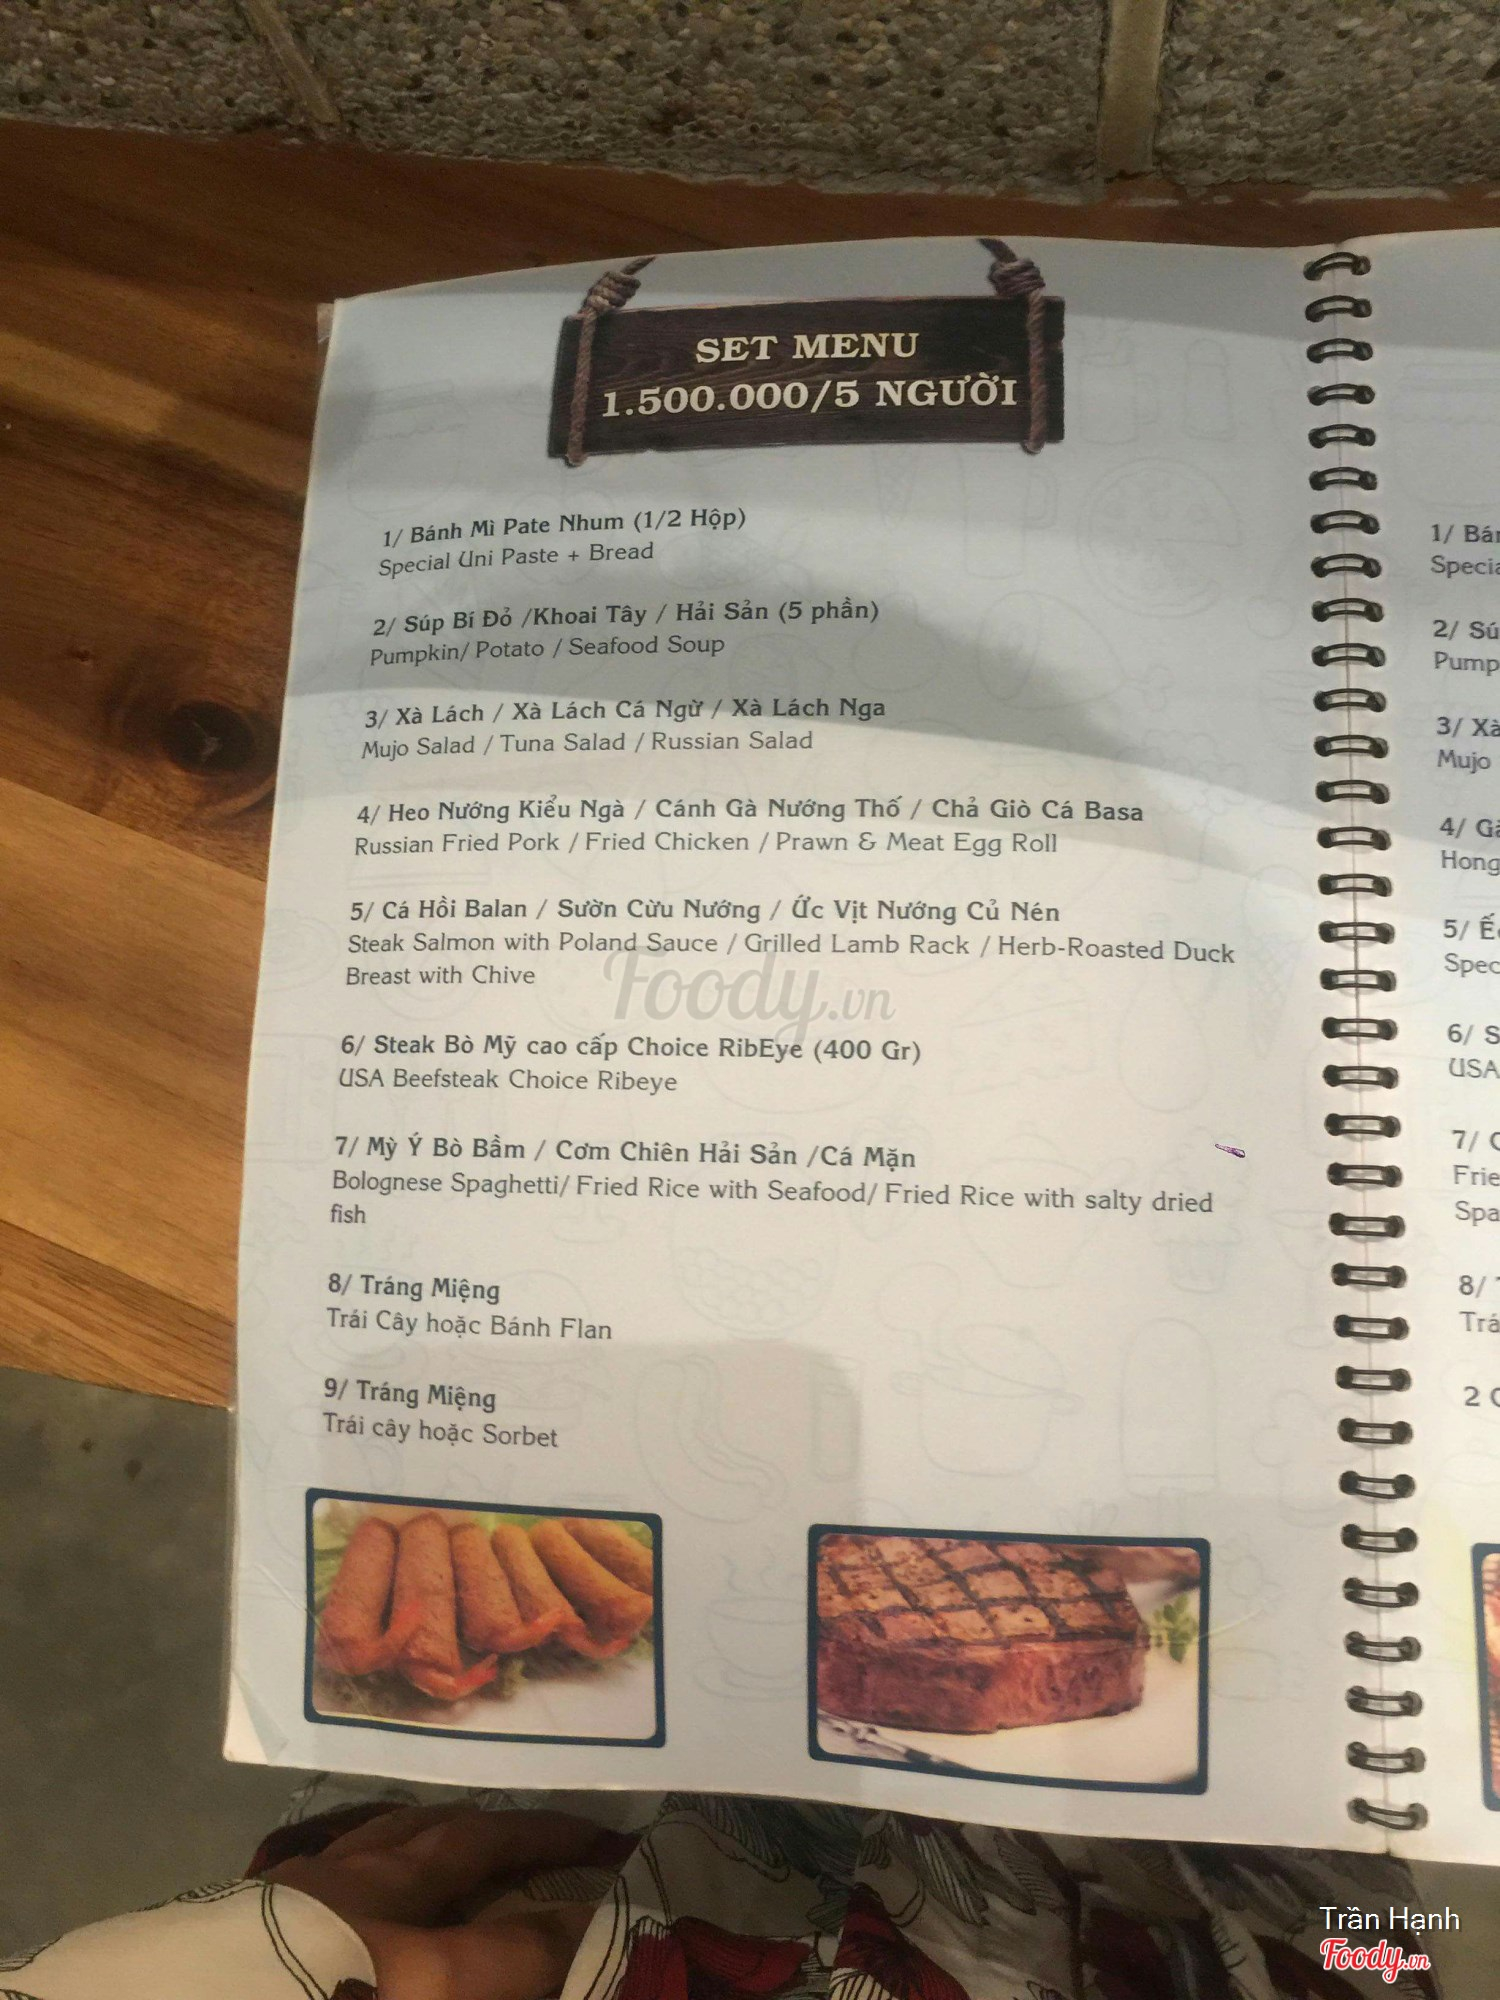 SET MENU
1.500.000/5 NGƯỜI
1/ Bánh Mì Pate Nhum (1/2 Hộp)
Special Uni Paste + Bread
2/ Súp Bí Đỏ /Khoai Tây / Hải Sản (5 phần)
Pumpkin/ Potato / Seafood Soup
3/ Xà Lách / Xà Lách Cá Ngừ / Xà Lách Nga
Mujo Salad / Tuna Salad / Russian Salad
4/ Heo Nướng Kiểu Ngà / Cánh Gà Nướng Thố / Chả Giò Cá Basa
Russian Fried Pork / Fried Chicken / Prawn & Meat Egg Roll
5/ Cá Hồi Balan / Sườn Cừu Nướng / Ức Vịt Nướng Củ Nén
Steak Salmon with Poland Sauce / Grilled Lamb Rack / Herb-Roasted Duck
Breast with Chive
6/ Steak Bò Mỹ cao cấp Choice RibEye (400 Gr)
USA Beefsteak Choice Ribeye
7/ Mỳ Ý Bò Bằm / Cơm Chiên Hải Sản /Cá Mặn
Bolognese Spaghetti/ Fried Rice with Seafood/ Fried Rice with salty dried
fish
8/ Tráng Miệng
Trái Cây hoặc Bánh Flan
9/ Tráng Miệng
Trái cây hoặc Sorbet
Foody.vn
1/
2/
Pump
3/ Xà
Mujo
4/
Hong
5/
Spec
6/ S
USA
7/
Frie
Spa
8/
2
Trần Hạnh
Foody.vn